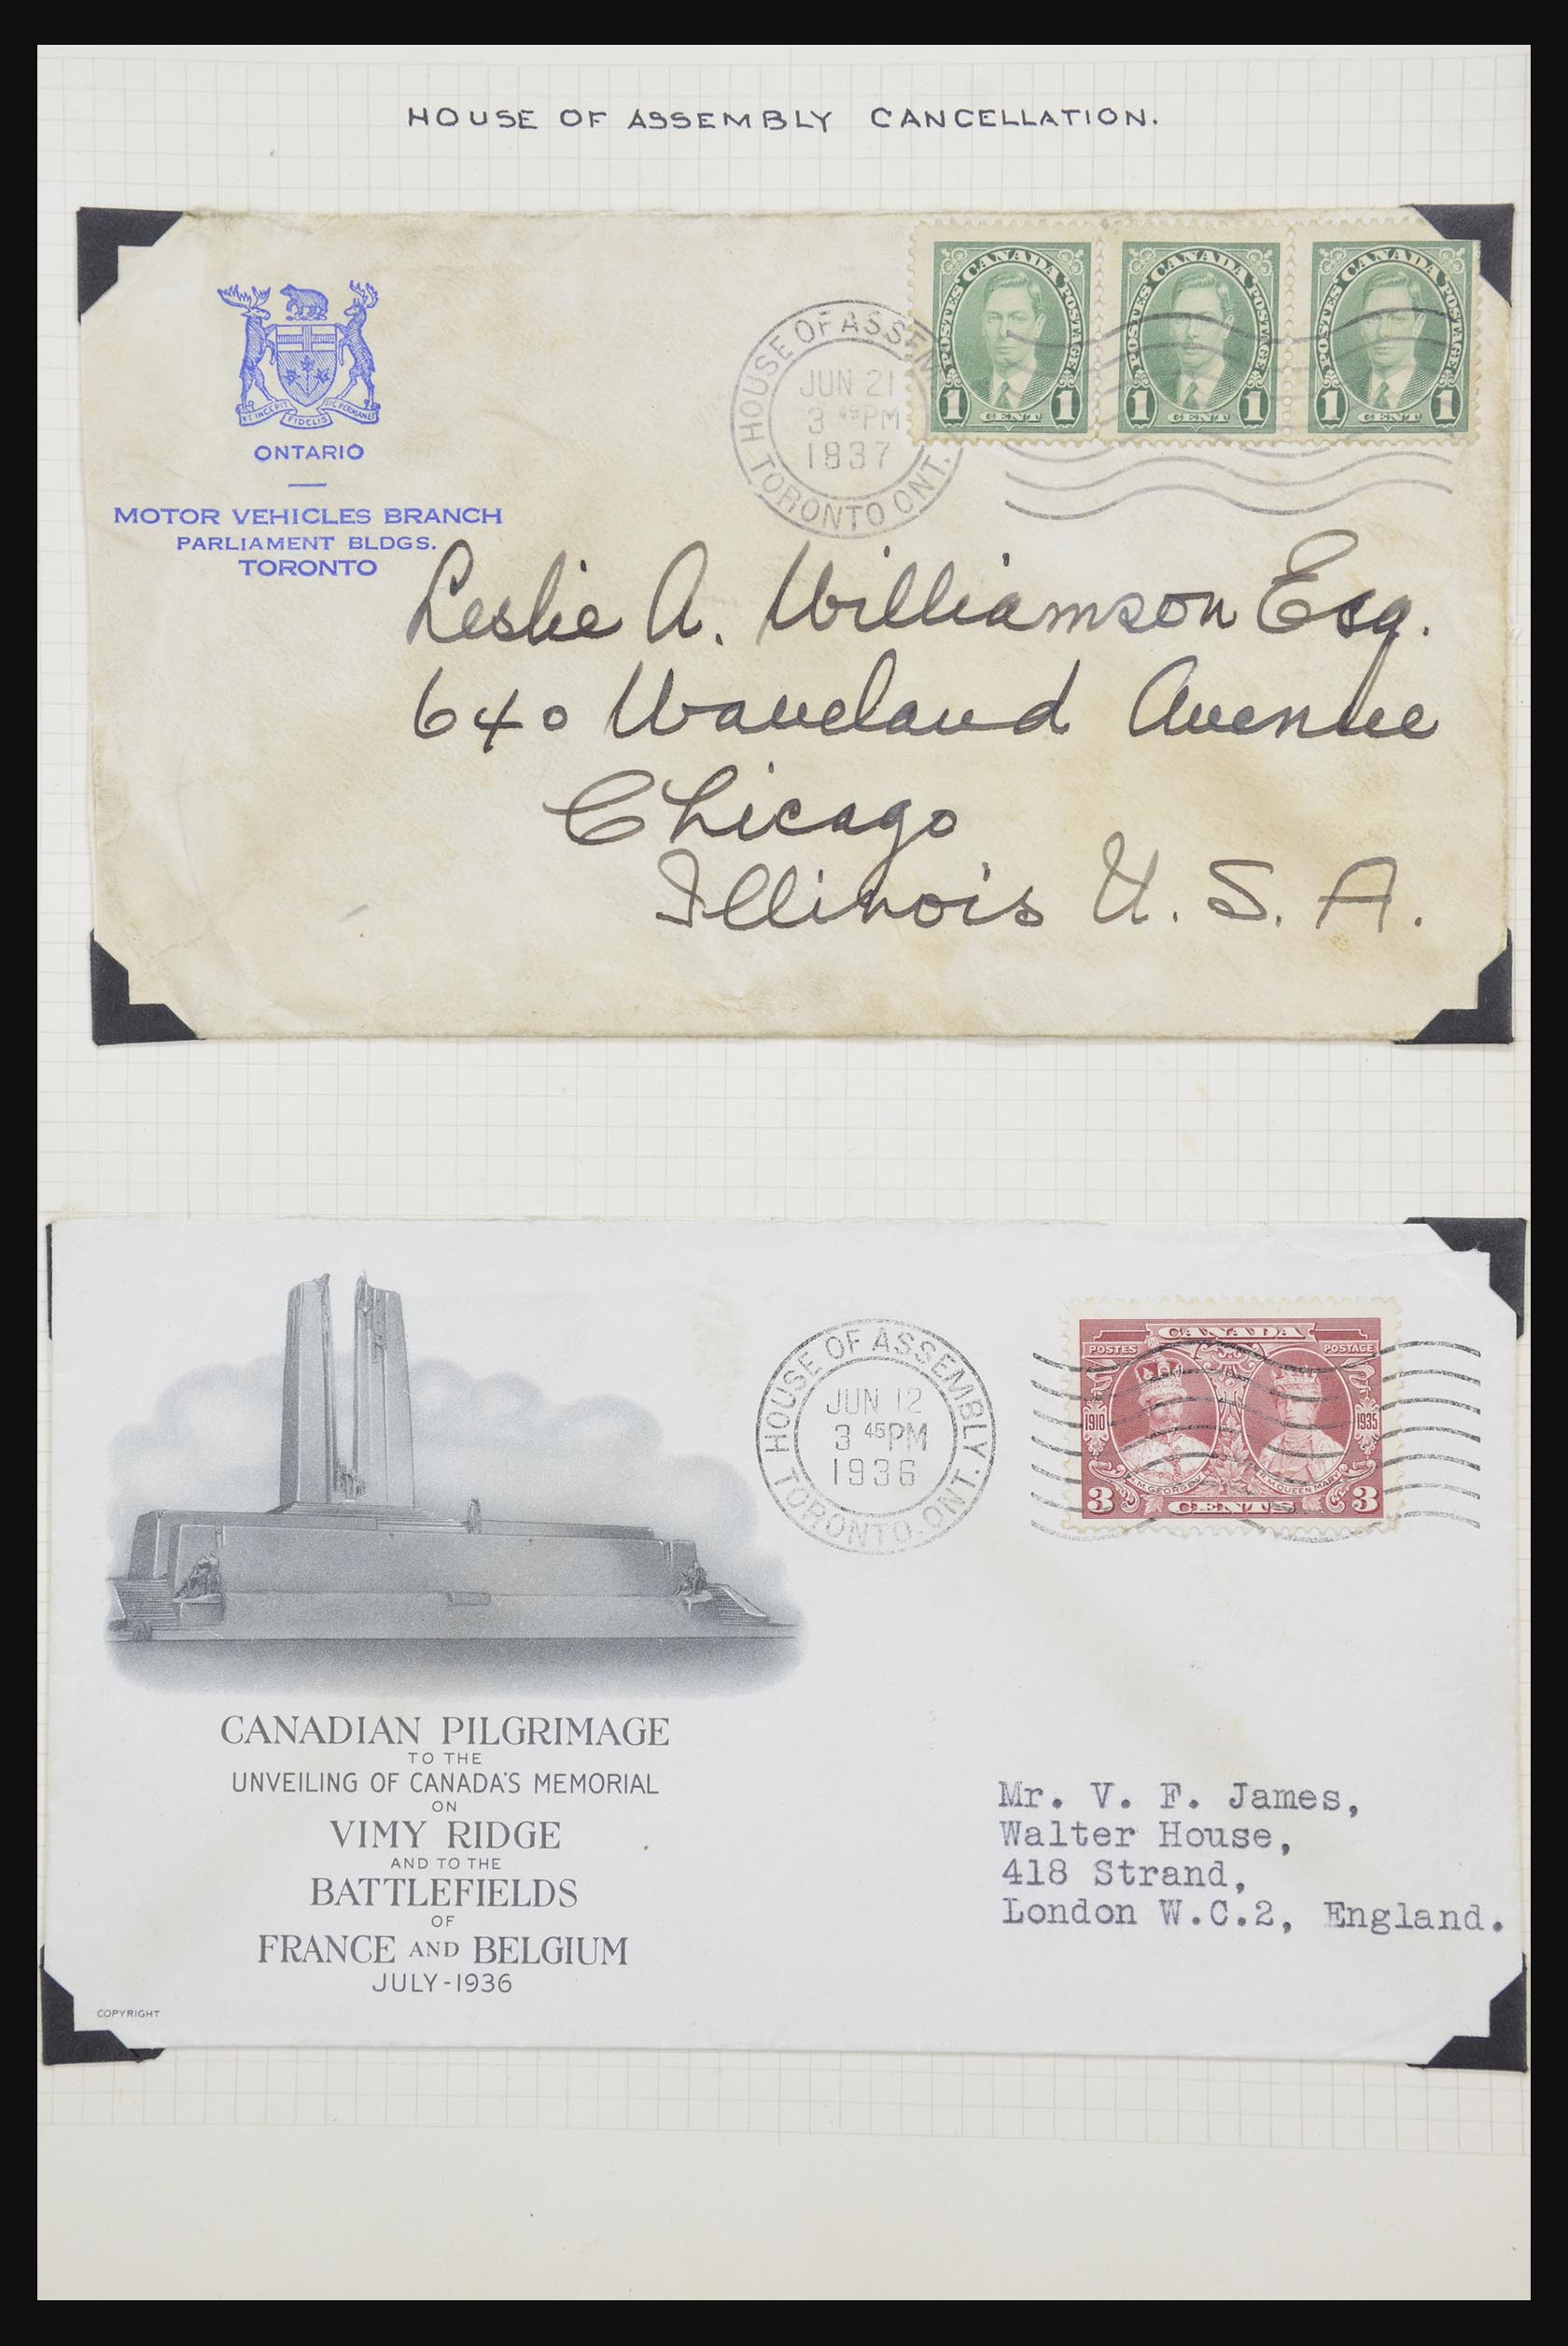 HOUSE OF ASSEMBLY CANCELLATION.
ONTARIO
MOTOR VEHICLES BRANCH
PARLIAMENT BLDGS.
TORONTO
HOUSE OF ASSEM
JUN 21
3 45 PM
1937
TORONTO ONT.
CANADA
POSTES POSTAGE
1 CENT 1
CANADA
POSTES POSTAGE
1 CENT 1
CANADA
POSTES POSTAGE
1 CENT 1
Leslie A. Williamson Esq.
640 Waveland Avenue
Chicago
Illinois U. S. A.
CANADIAN PILGRIMAGE
TO THE
UNVEILING OF CANADA'S MEMORIAL
ON
VIMY RIDGE
AND TO THE
BATTLEFIELDS
OF
FRANCE AND BELGIUM
JULY-1936
COPYRIGHT
HOUSE OF ASSEMBLY
JUN 12
3 45 PM
1936
TORONTO, ONT.
CANADA
POSTES POSTAGE
1910 1935
3 CENTS 3
Mr. V. F. James,
Walter House,
418 Strand,
London W.C.2, England.